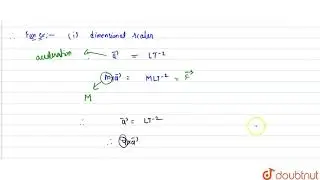 ∴ (i) dimensional scalar
acceleration ← a⃗ = LT⁻²
m×a⃗ = MLT⁻² = F⃗
M
∴ a⃗ = LT⁻²
∴ a⃗
doubtnut